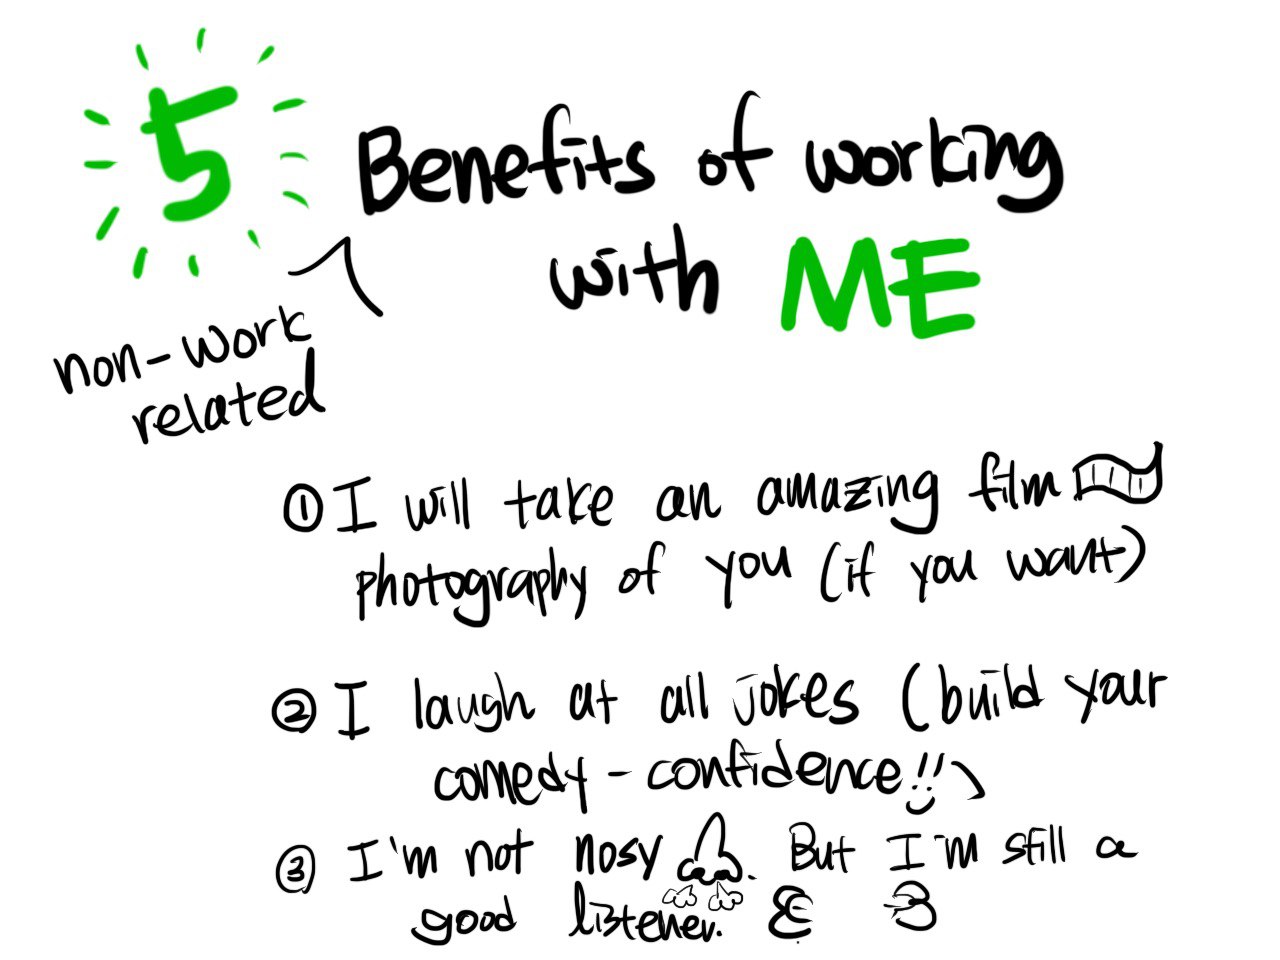 5 Benefits of working
with ME
non-work
related
① I will take an amazing film
photography of you (if you want)
② I laugh at all jokes (build your
comedy-confidence!!)
③ I'm not nosy. But I'm still a
good listener.